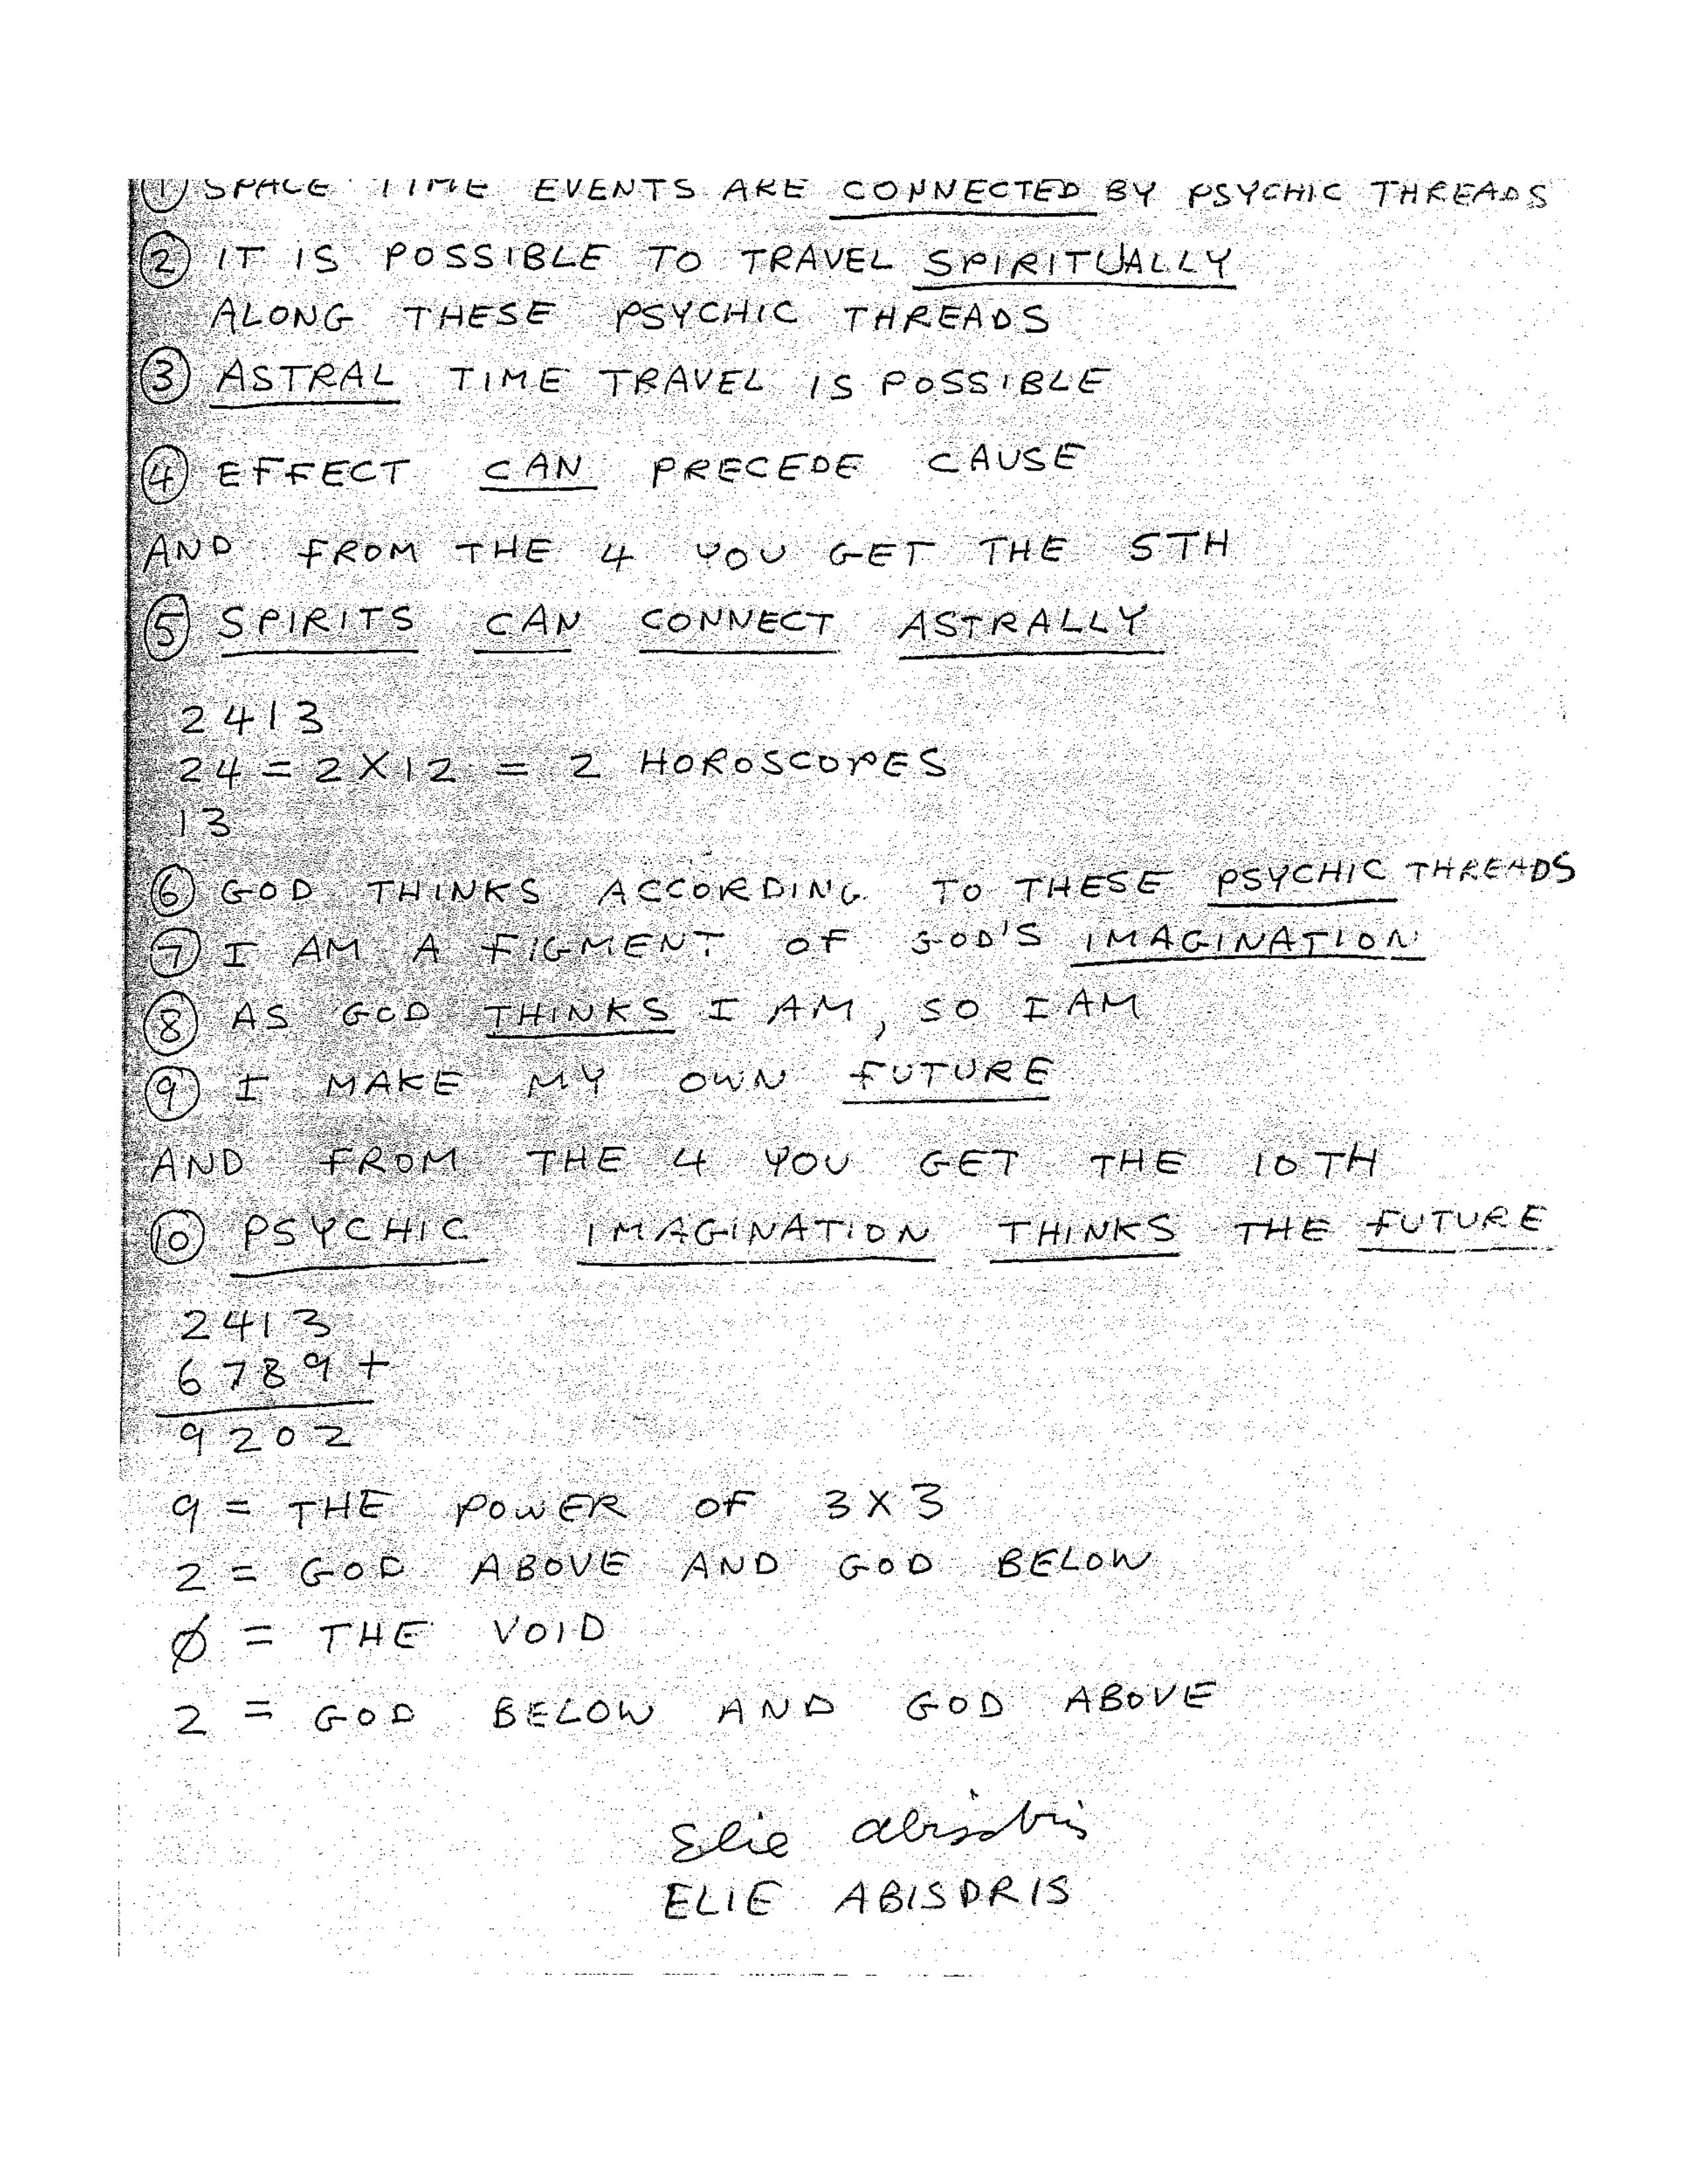 ① SPACE TIME EVENTS ARE CONNECTED BY PSYCHIC THREADS
② IT IS POSSIBLE TO TRAVEL SPIRITUALLY
ALONG THESE PSYCHIC THREADS
③ ASTRAL TIME TRAVEL IS POSSIBLE
④ EFFECT CAN PRECEDE CAUSE
AND FROM THE 4 YOU GET THE 5TH
⑤ SPIRITS CAN CONNECT ASTRALLY
2413
24 = 2 X 12 = 2 HOROSCOPES
13
⑥ GOD THINKS ACCORDING TO THESE PSYCHIC THREADS
⑦ I AM A FIGMENT OF GOD'S IMAGINATION
⑧ AS GOD THINKS I AM, SO I AM
⑨ I MAKE MY OWN FUTURE
AND FROM THE 4 YOU GET THE 10TH
⑩ PSYCHIC IMAGINATION THINKS THE FUTURE
2413
6789 +
9202
9 = THE POWER OF 3 X 3
2 = GOD ABOVE AND GOD BELOW
Ø = THE VOID
2 = GOD BELOW AND GOD ABOVE
Elie Abisdris
ELIE ABISDRIS